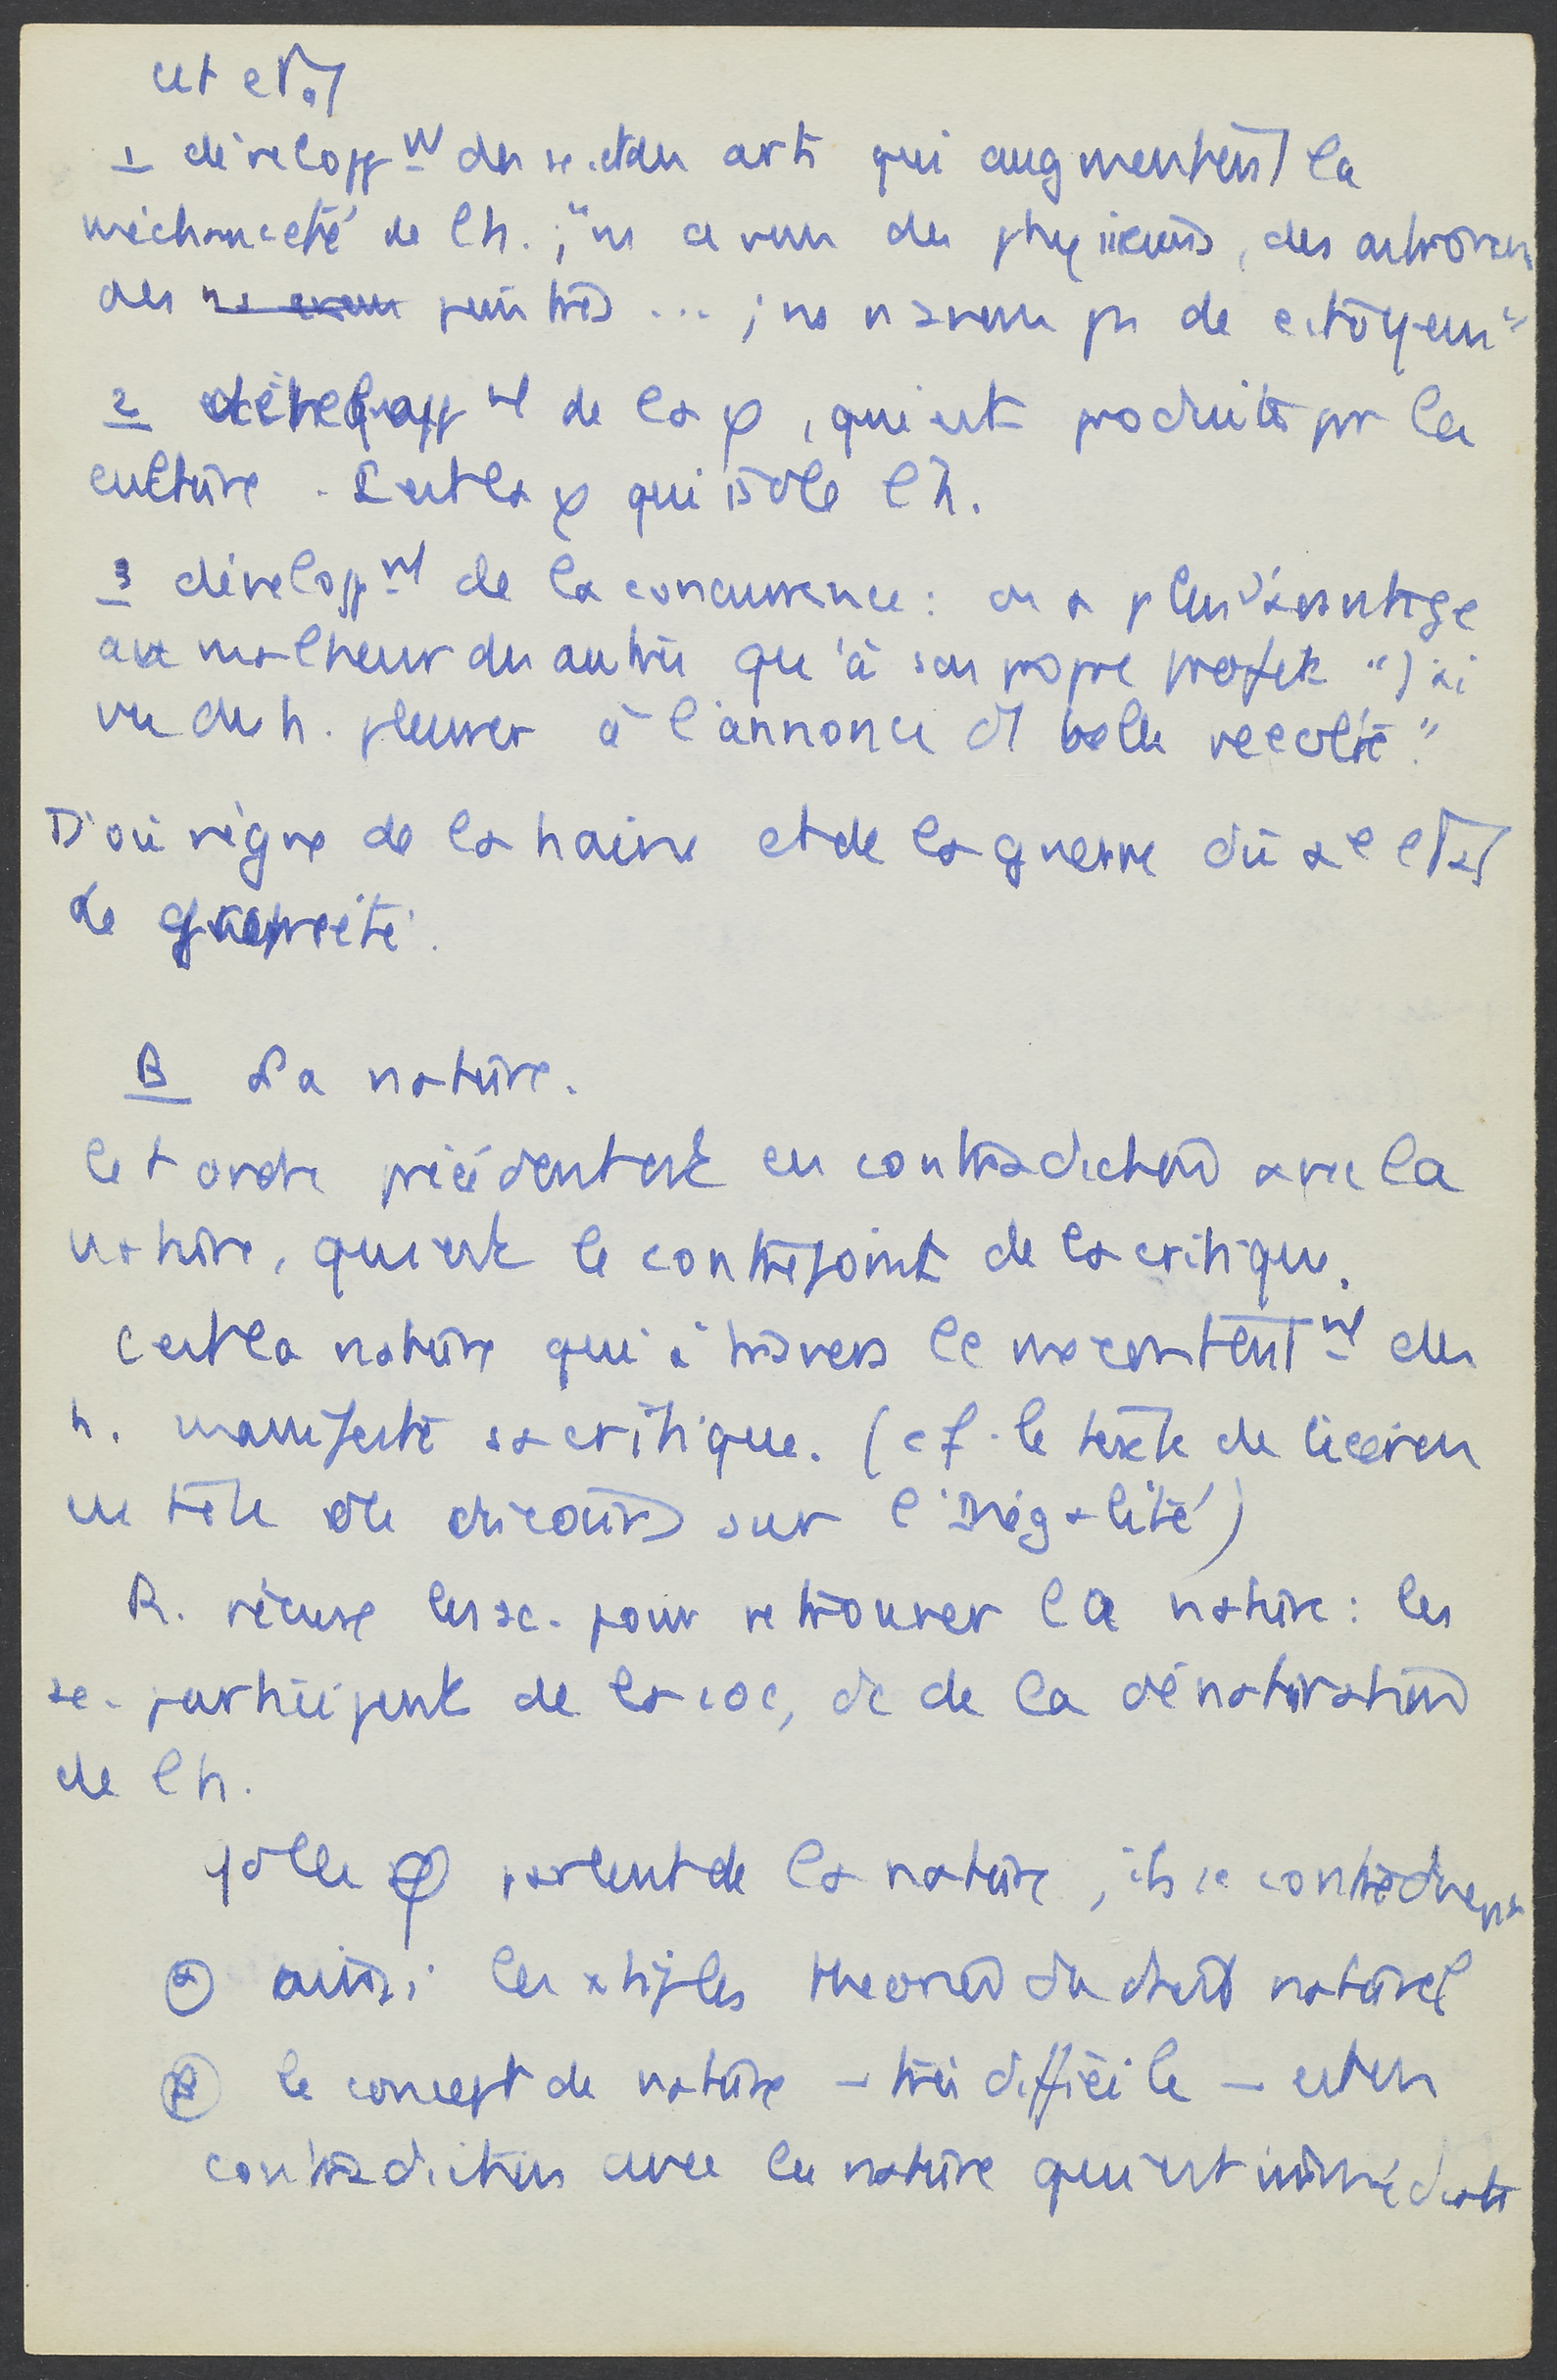 cet état
1 développnt des sc. et des arts qui augmentent la
méchanceté de l'h. ; "ns avons des physiciens, des astronomes
des peintres ... ; ns n'avons ps de citoyens"
2 développnt de la φ, qui est produite pr la
culture. C'est la φ qui isole l'h.
3 développnt de la concurrence : on a plus d'avantage
au malheur des autres qu'à son propre profit "J'ai
vu des h. pleurer à l'annonce d' belle récolte."
D'où règne de la haine et de la guerre dû à l'état
de
B La nature.
Cet ordre précédent est en contradiction avec la
nature, qui est le contrepoint de la critique.
C'est la nature qui à travers le mécontentnt des
h. manifeste sa critique. (cf. le texte de
en tête du discours sur l'inégalité)
R. récuse les sc. pour retrouver la nature : les
sc. participent de la soc, dc de la dénaturation
de l'h.
φ parlent de la nature, ils se contredisent
α ainsi les xtiples théories du droit naturel
β le concept de nature – très difficile – est en
contradiction avec la nature qui est immédiate